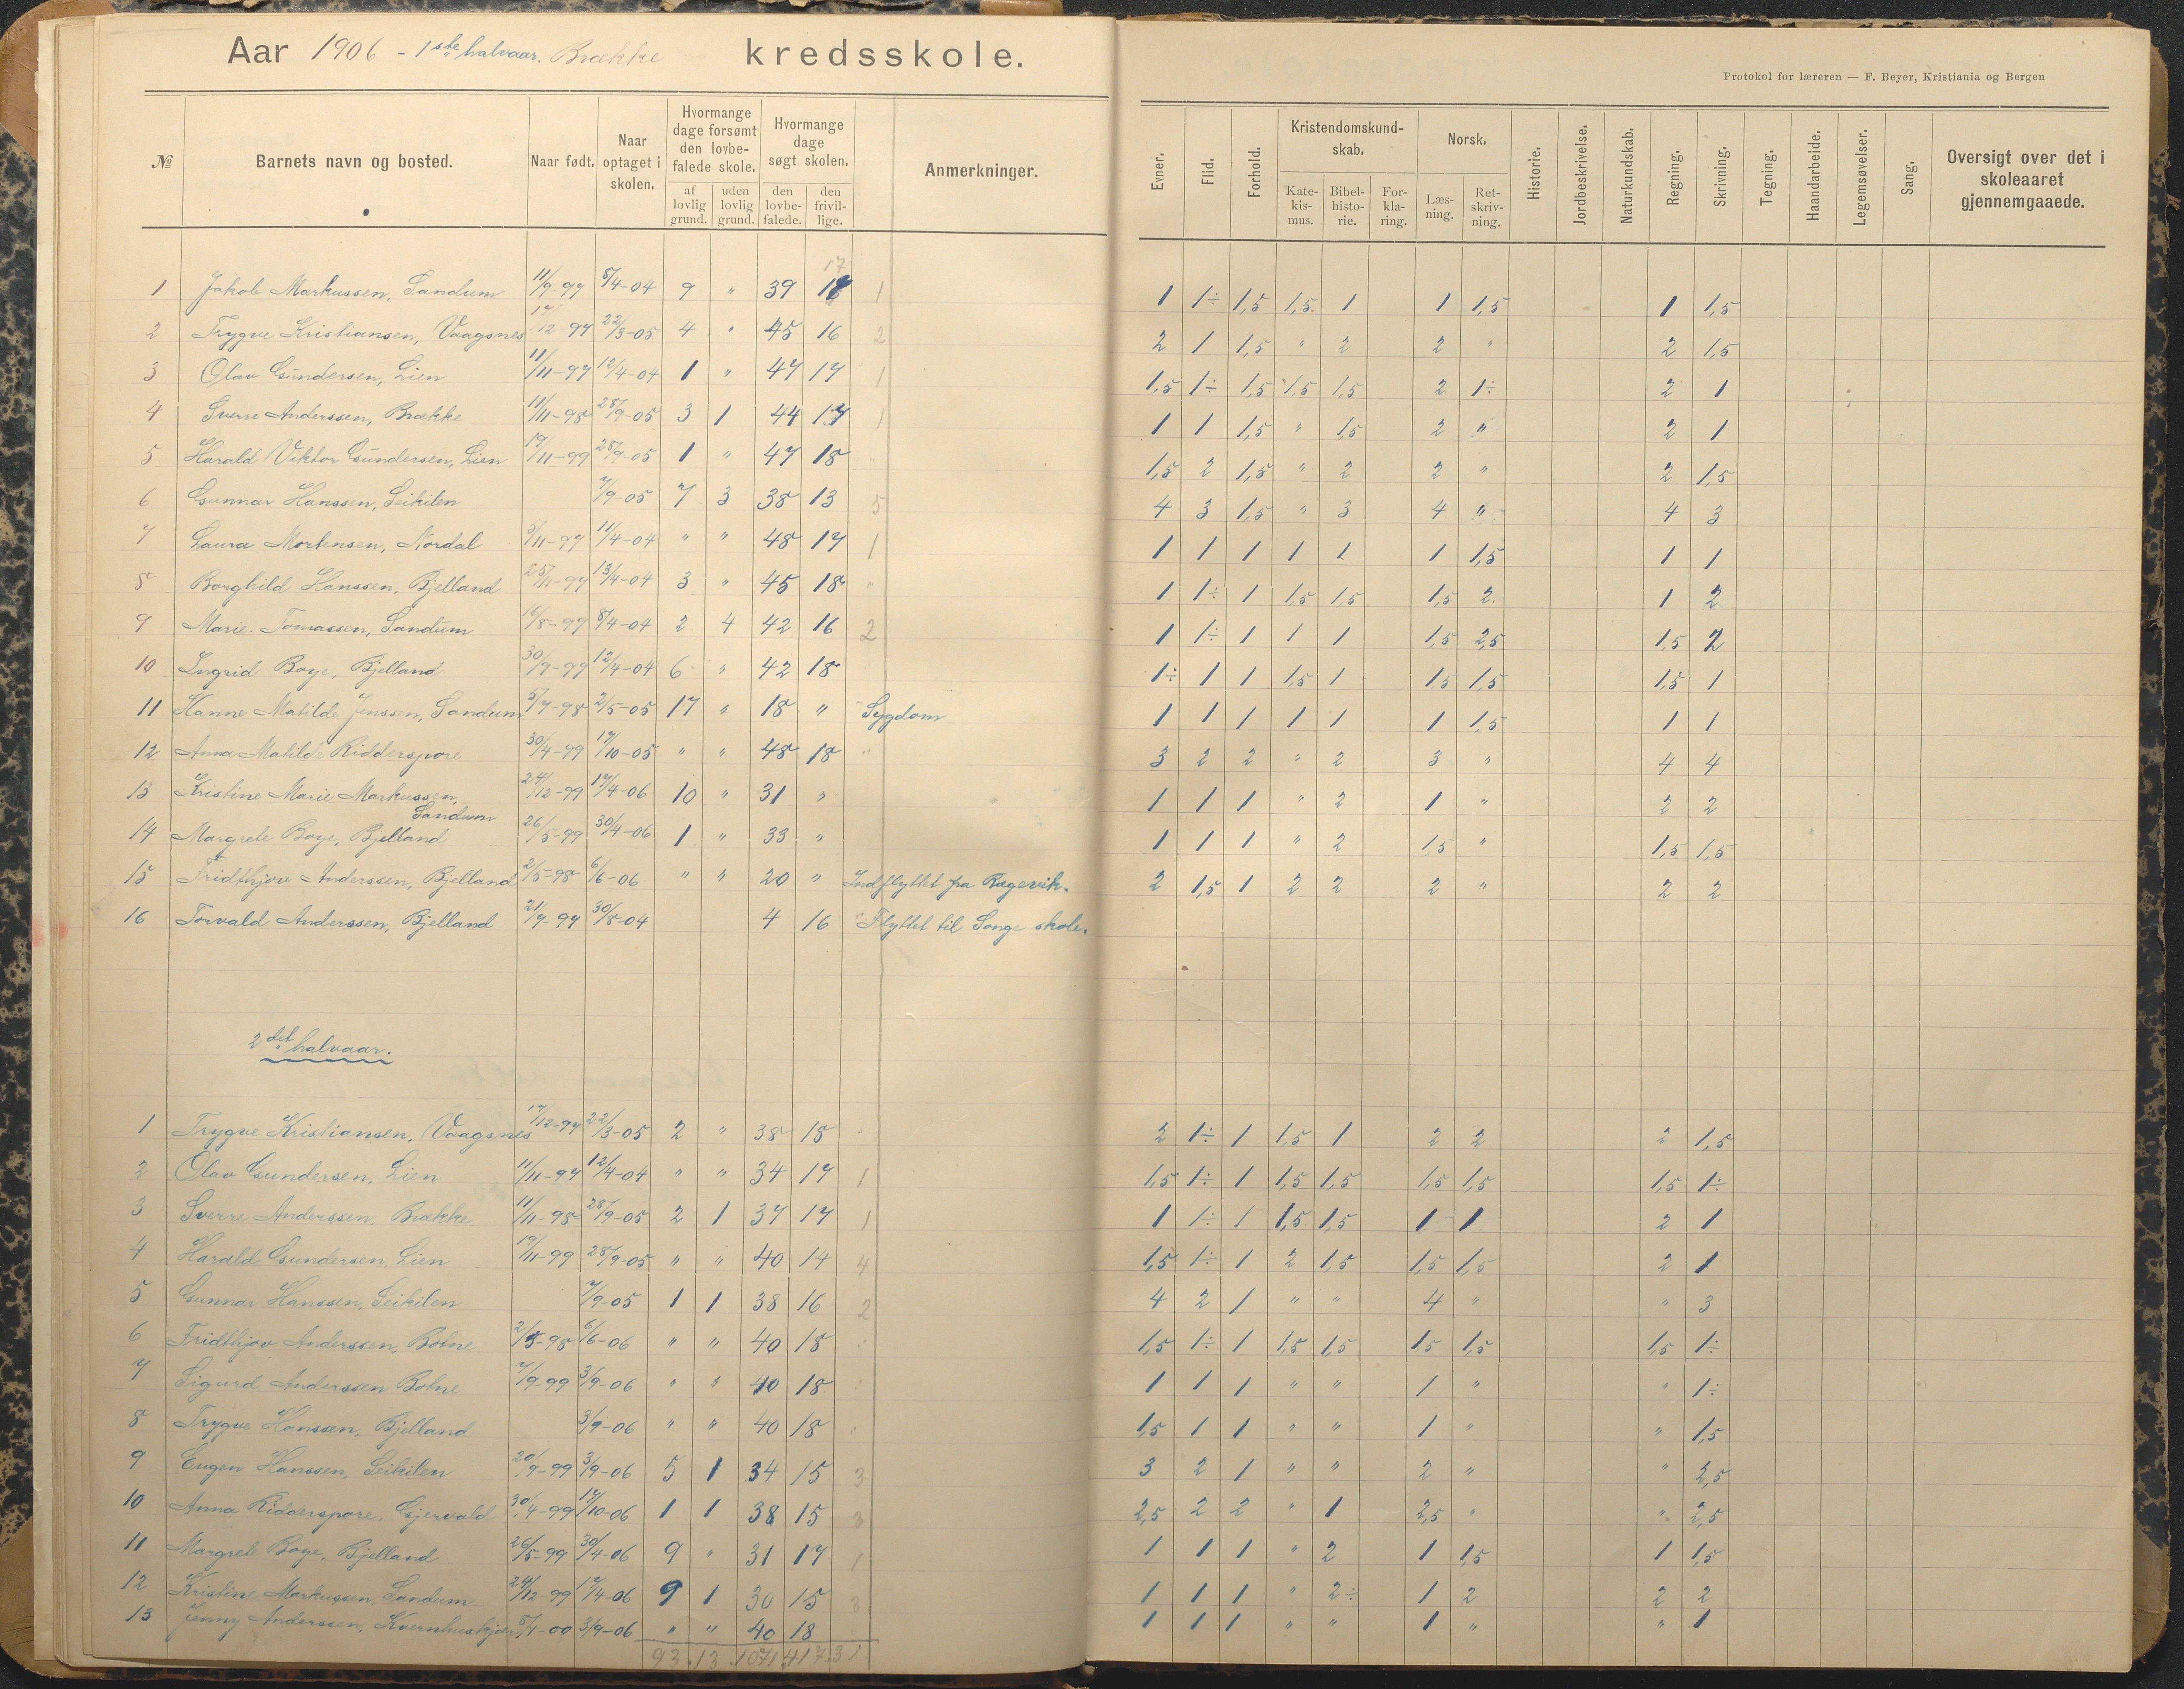 Aar 1906 - 1ste halvaar. Brække kredsskole.
Protokol for læreren — F. Beyer, Kristiania og Bergen
№ Barnets navn og bosted. Naar født. Naar optaget i skolen. Hvormange dage forsømt den lovbefalede skole. af lovlig grund. uden lovlig grund. Hvormange dage søgt skolen. den lovbefalede. den frivillige. Anmerkninger. Evner. Flid. Forhold. Kristendomskundskab. Katekismus. Bibelhistorie. Forklaring. Norsk. Læsning. Retskrivning. Historie. Jordbeskrivelse. Naturkundskab. Regning. Skrivning. Tegning. Haandarbeide. Legemsøvelser. Sang. Oversigt over det i skoleaaret gjennemgaaede.
17
1 Jakob Markussen, Sandum 11/9-97 8/4-04 9 " 39 1 1 1÷ 1,5 1,5 1 1 1,5 1 1,5
2 Trygve Kristiansen, Vaagsnes 17/12 97 22/3-05 4 " 45 16 2 2 1 1,5 " 2 2 " 2 1,5
3 Olav Gundersen, Lien 11/11-97 12/4-04 1 " 47 17 1 1,5 1÷ 1,5 1,5 1,5 2 1÷ 2 1
4 Sverre Anderssen, Brække 11/11-98 28/9-05 3 1 44 17 1 1 1 1,5 " 1,5 2 " 2 1
5 Harald Viktor Gundersen, Lien 19/11-99 28/9-05 1 " 47 18 " 1,5 2 1,5 " 2 2 " 2 1,5
6 Gunnar Hanssen, Leikilen 7/9-05 7 3 38 13 5 4 3 1,5 " 3 4 " 4 3
7 Laura Mortensen, Nordal 5/11-97 11/4-04 " " 48 17 1 1 1 1 1 1 1 1,5 1 1
8 Borghild Hanssen, Bjelland 25/11-97 13/4-04 3 " 45 18 " 1 1÷ 1 1,5 1,5 1,5 2 1 2
9 Marie Tomassen, Sandum 16/8-97 8/4-04 2 4 42 16 2 1 1÷ 1 1 1 1,5 2,5 1,5 2
10 Ingrid Boye, Bjelland 30/9-97 12/4-04 6 " 42 18 1÷ 1 1 1,5 1 1,5 1,5 1,5 1
11 Hanne Matilde Jenssen, Sandum 5/7-98 2/5-05 17 " 18 " " Sygdom 1 1 1 1 1 1 1,5 1 1
12 Anna Matilde Ridderspore 30/4-99 17/10-05 " " 48 18 " 3 2 2 " 2 3 " 4 4
13 Kristine Marie Markussen, 24/12-99 17/4-06 10 " 31 " 1 1 1 " 2 1 " 2 2
Sandum
14 Margrete Boye, Bjelland 26/5-99 30/4-06 1 " 33 " 1 1 1 " 2 1,5 " 1,5 1,5
15 Fridthjov Anderssen, Bjelland 2/5-98 6/6-06 " " 20 " Indflyttet fra Ragevik. 2 1,5 1 2 2 2 " 2 2
16 Torvald Anderssen, Bjelland 21/7-97 30/8-04 4 16 " Flyttet til Songe skole.
2det halvaar.
1 Trygve Kristiansen, Vaagsnes 17/12-97 22/3-05 2 " 38 18 " 2 1÷ 1 1,5 1 2 2 2 1,5
2 Olav Gundersen, Lien 11/11-97 12/4-04 " " 34 17 1 1,5 1÷ 1 1,5 1,5 1,5 1,5 1,5 1÷
3 Sverre Anderssen, Brække 11/11-98 28/9-05 2 1 37 17 1 1 1÷ 1 1,5 1,5 1 1 2 1
4 Harald Gundersen, Lien 19/11-99 28/9-05 " " 40 14 4 1,5 1÷ 1 2 1,5 1,5 1,5 2 1
5 Gunnar Hanssen, Leikilen 7/9-05 1 1 38 16 2 4 2 1 " " 4 " " 3
6 Fridthjov Anderssen, Botne 2/5-98 6/6-06 " " 40 18 " 1,5 1÷ 1 1,5 1,5 1,5 1,5 1,5 1÷
7 Sigurd Anderssen Botne 7/9-99 3/9-06 " " 40 18 " 1 1 1 " " 1 " " 1÷
8 Trygve Hanssen, Bjelland 3/9-06 " " 40 18 " 1,5 1 1 " " 1 " " 1,5
9 Eugen Hanssen, Leikilen 20/9-99 3/9-06 5 1 34 15 3 3 2 1 " " 2 " " 2,5
10 Anna Ridderspore, Gjervald 30/4-99 17/10-06 1 1 38 15 3 2,5 2 2 " 1 2,5 " " 2,5
11 Margrete Boye, Bjelland 26/5-99 30/4-06 9 " 31 17 1 1 1 1 " 2 1 1,5 1 1,5
12 Kristine Markussen, Sandum 24/12-99 17/4-06 9 1 30 15 3 1 1 1 " 2÷ 1 2 2 2
13 Jenny Anderssen, Kvernhuskjær -00 3/9-06 " " 40 18 1 1 1 " " 1 " " 1
93 13 1071 417 31